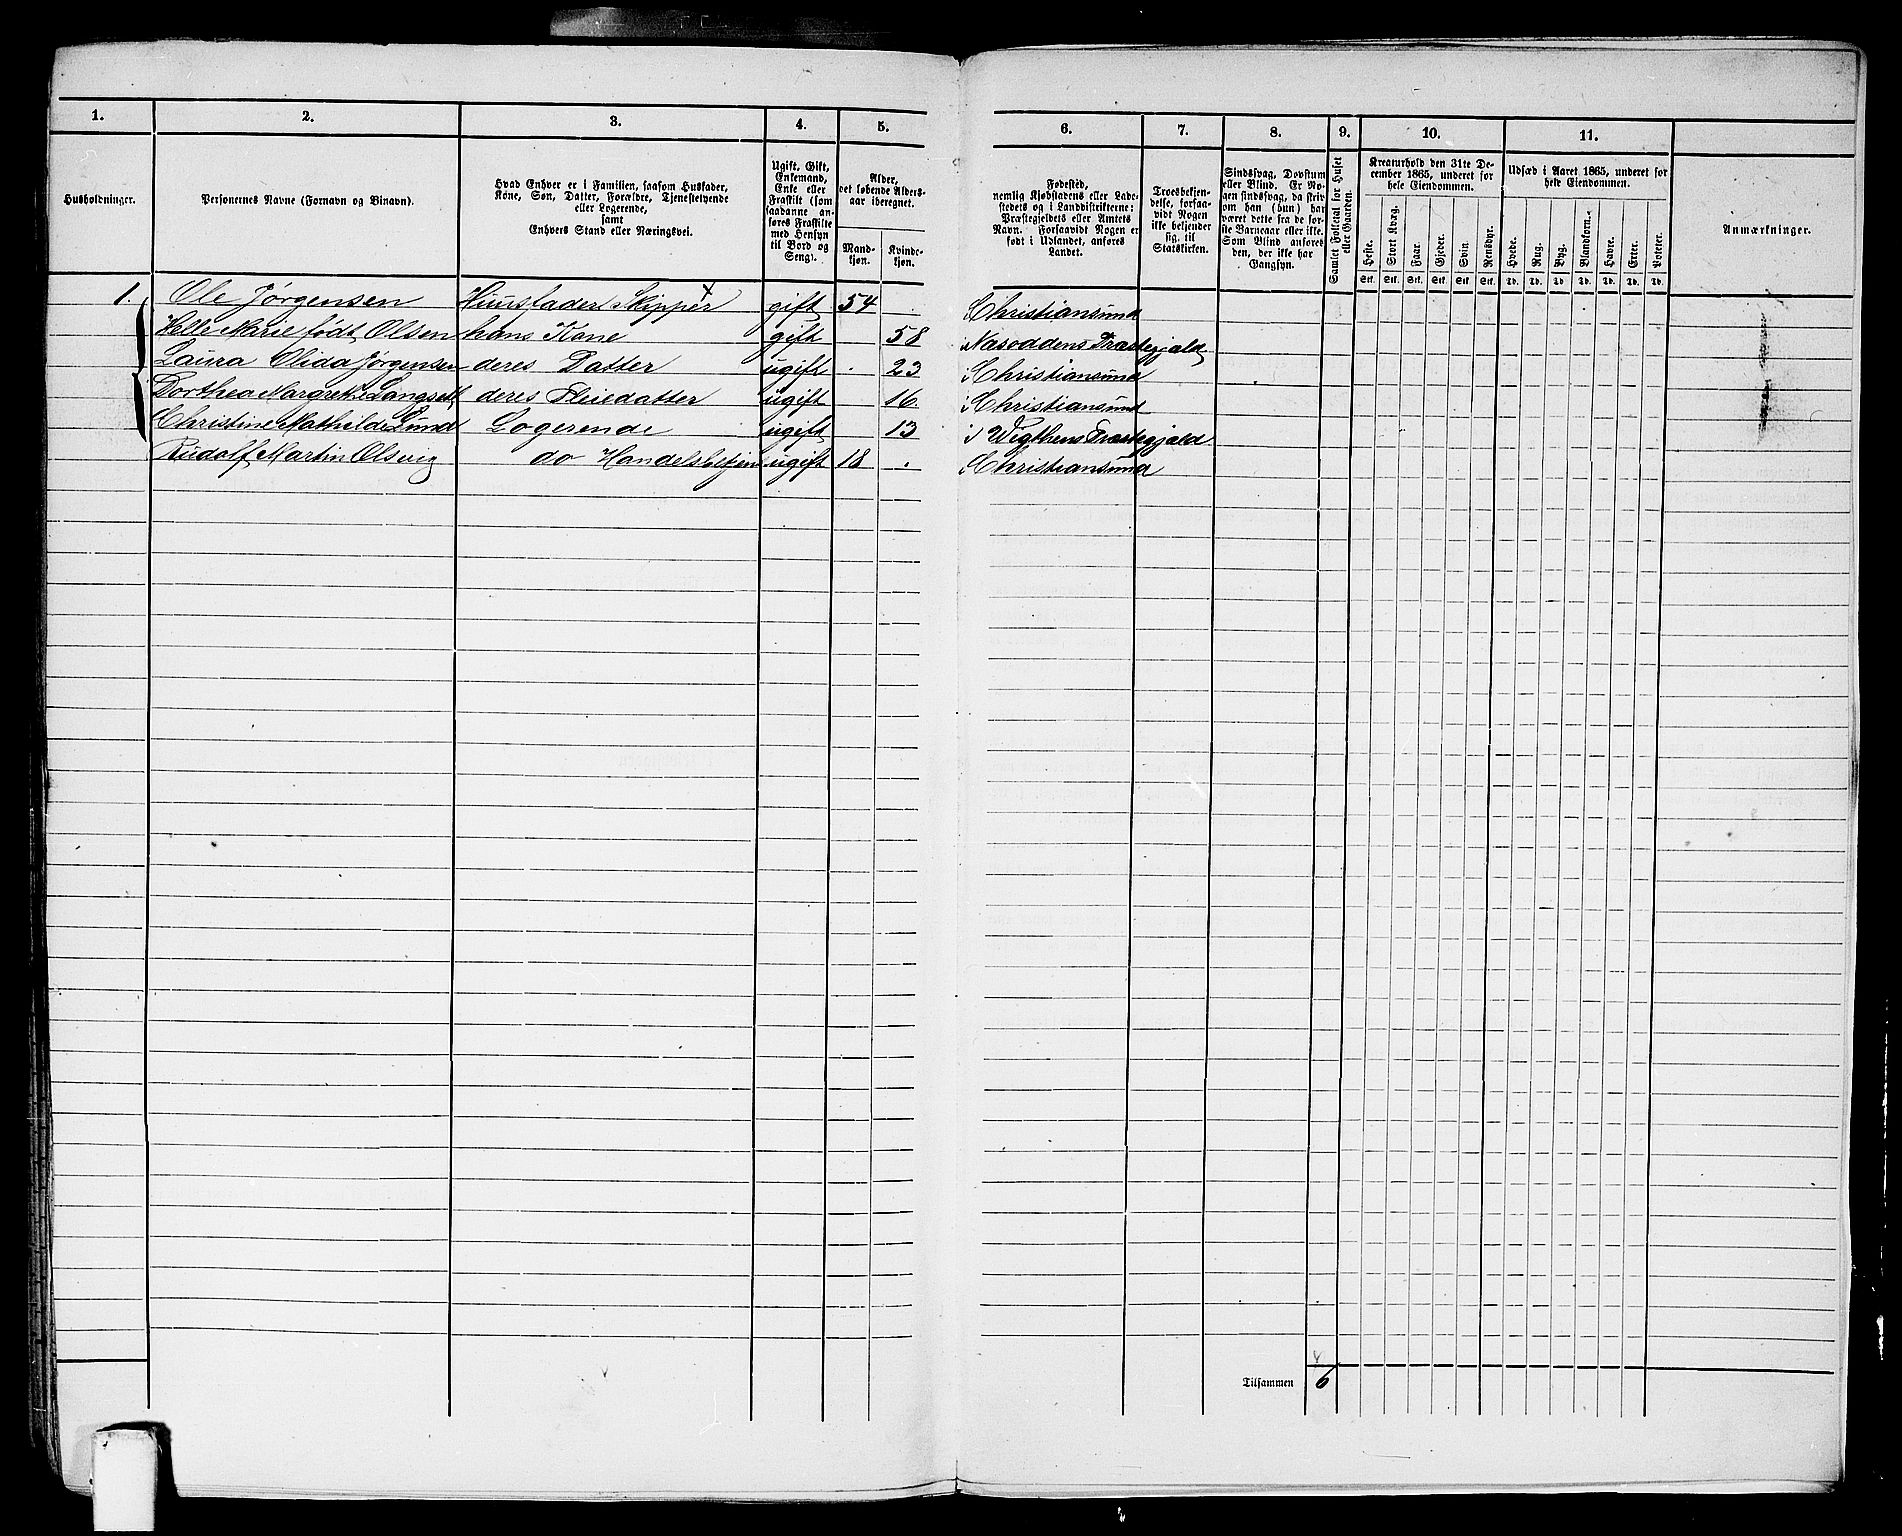 1. 2. 3. 4. 5. 6. 7. 8. 9. 10. 11.
Husholdninger.
Personernes Navne (Fornavn og Binavn).
Hvad Enhver er i Familien, saasom Husfader,
Kone, Søn, Datter, Forældre, Tjenestetyende
eller Logerende,
samt
Enhvers Stand eller Næringsvei.
Ugift, Gift,
Enkemand,
Enke eller
Fraskilt (som
saadanne an-
føres Fraskilte
med Hensyn
til Bord og
Seng).
Alder,
det løbende Alders-
aar iberegnet.
Mand-
kjøn.
Kvinde-
kjøn.
Fødested,
nemlig Kjøbstadens eller Lade-
stedets og i Landdistrikterne:
Præstegjeldets eller Amtets
Navn. Forsaavidt Nogen er
født i Udlandet, anføres
Landet.
Troesbekjen-
delse, forsaa-
vidt Nogen
ikke bekjender
sig til
Statskirken.
Sindssvag, Døvstum
eller Blind. Er No-
gen sindssvag, da skriv
om han (hun) har
været dette fra de før-
ste Barneaar eller ikke.
Som Blind anføres
den, der ikke har
Gangsyn.
Samlet Folketal for Huset
eller Gaarden.
Kreaturhold den 31te De-
cember 1865, underet for
hele Eiendommen.
Heste. Stort Kvæg. Faar. Gjeder. Svin. Rensdyr.
Stk. Stk. Stk. Stk. Stk. Stk.
Udsæd i Aaret 1865, underet for
hele Eiendommen.
Hvede. Rug. Byg. Blandkorn. Havre. Erter. Poteter.
Td. Td. Td. Td. Td. Td. Td.
Anmærkninger.
1. Ole Jørgensen Huusfader Skipper gift 54 Christiansund
Helle Marie født Olsen hans Kone gift 58 Næsoddens Præstegjeld
Laura Olida Jørgensen deres Datter ugift 23 i Christiansund
Dorthea Margrethe Langseth deres Pleiedatter ugift 16 i Christiansund
Christine Mathilde Lund Logerende ugift 13 i Præstegjæld
Rudolf Martin Olsvig do Handelsbetjen ugift 18 i Christiansund
Tilsammen 6